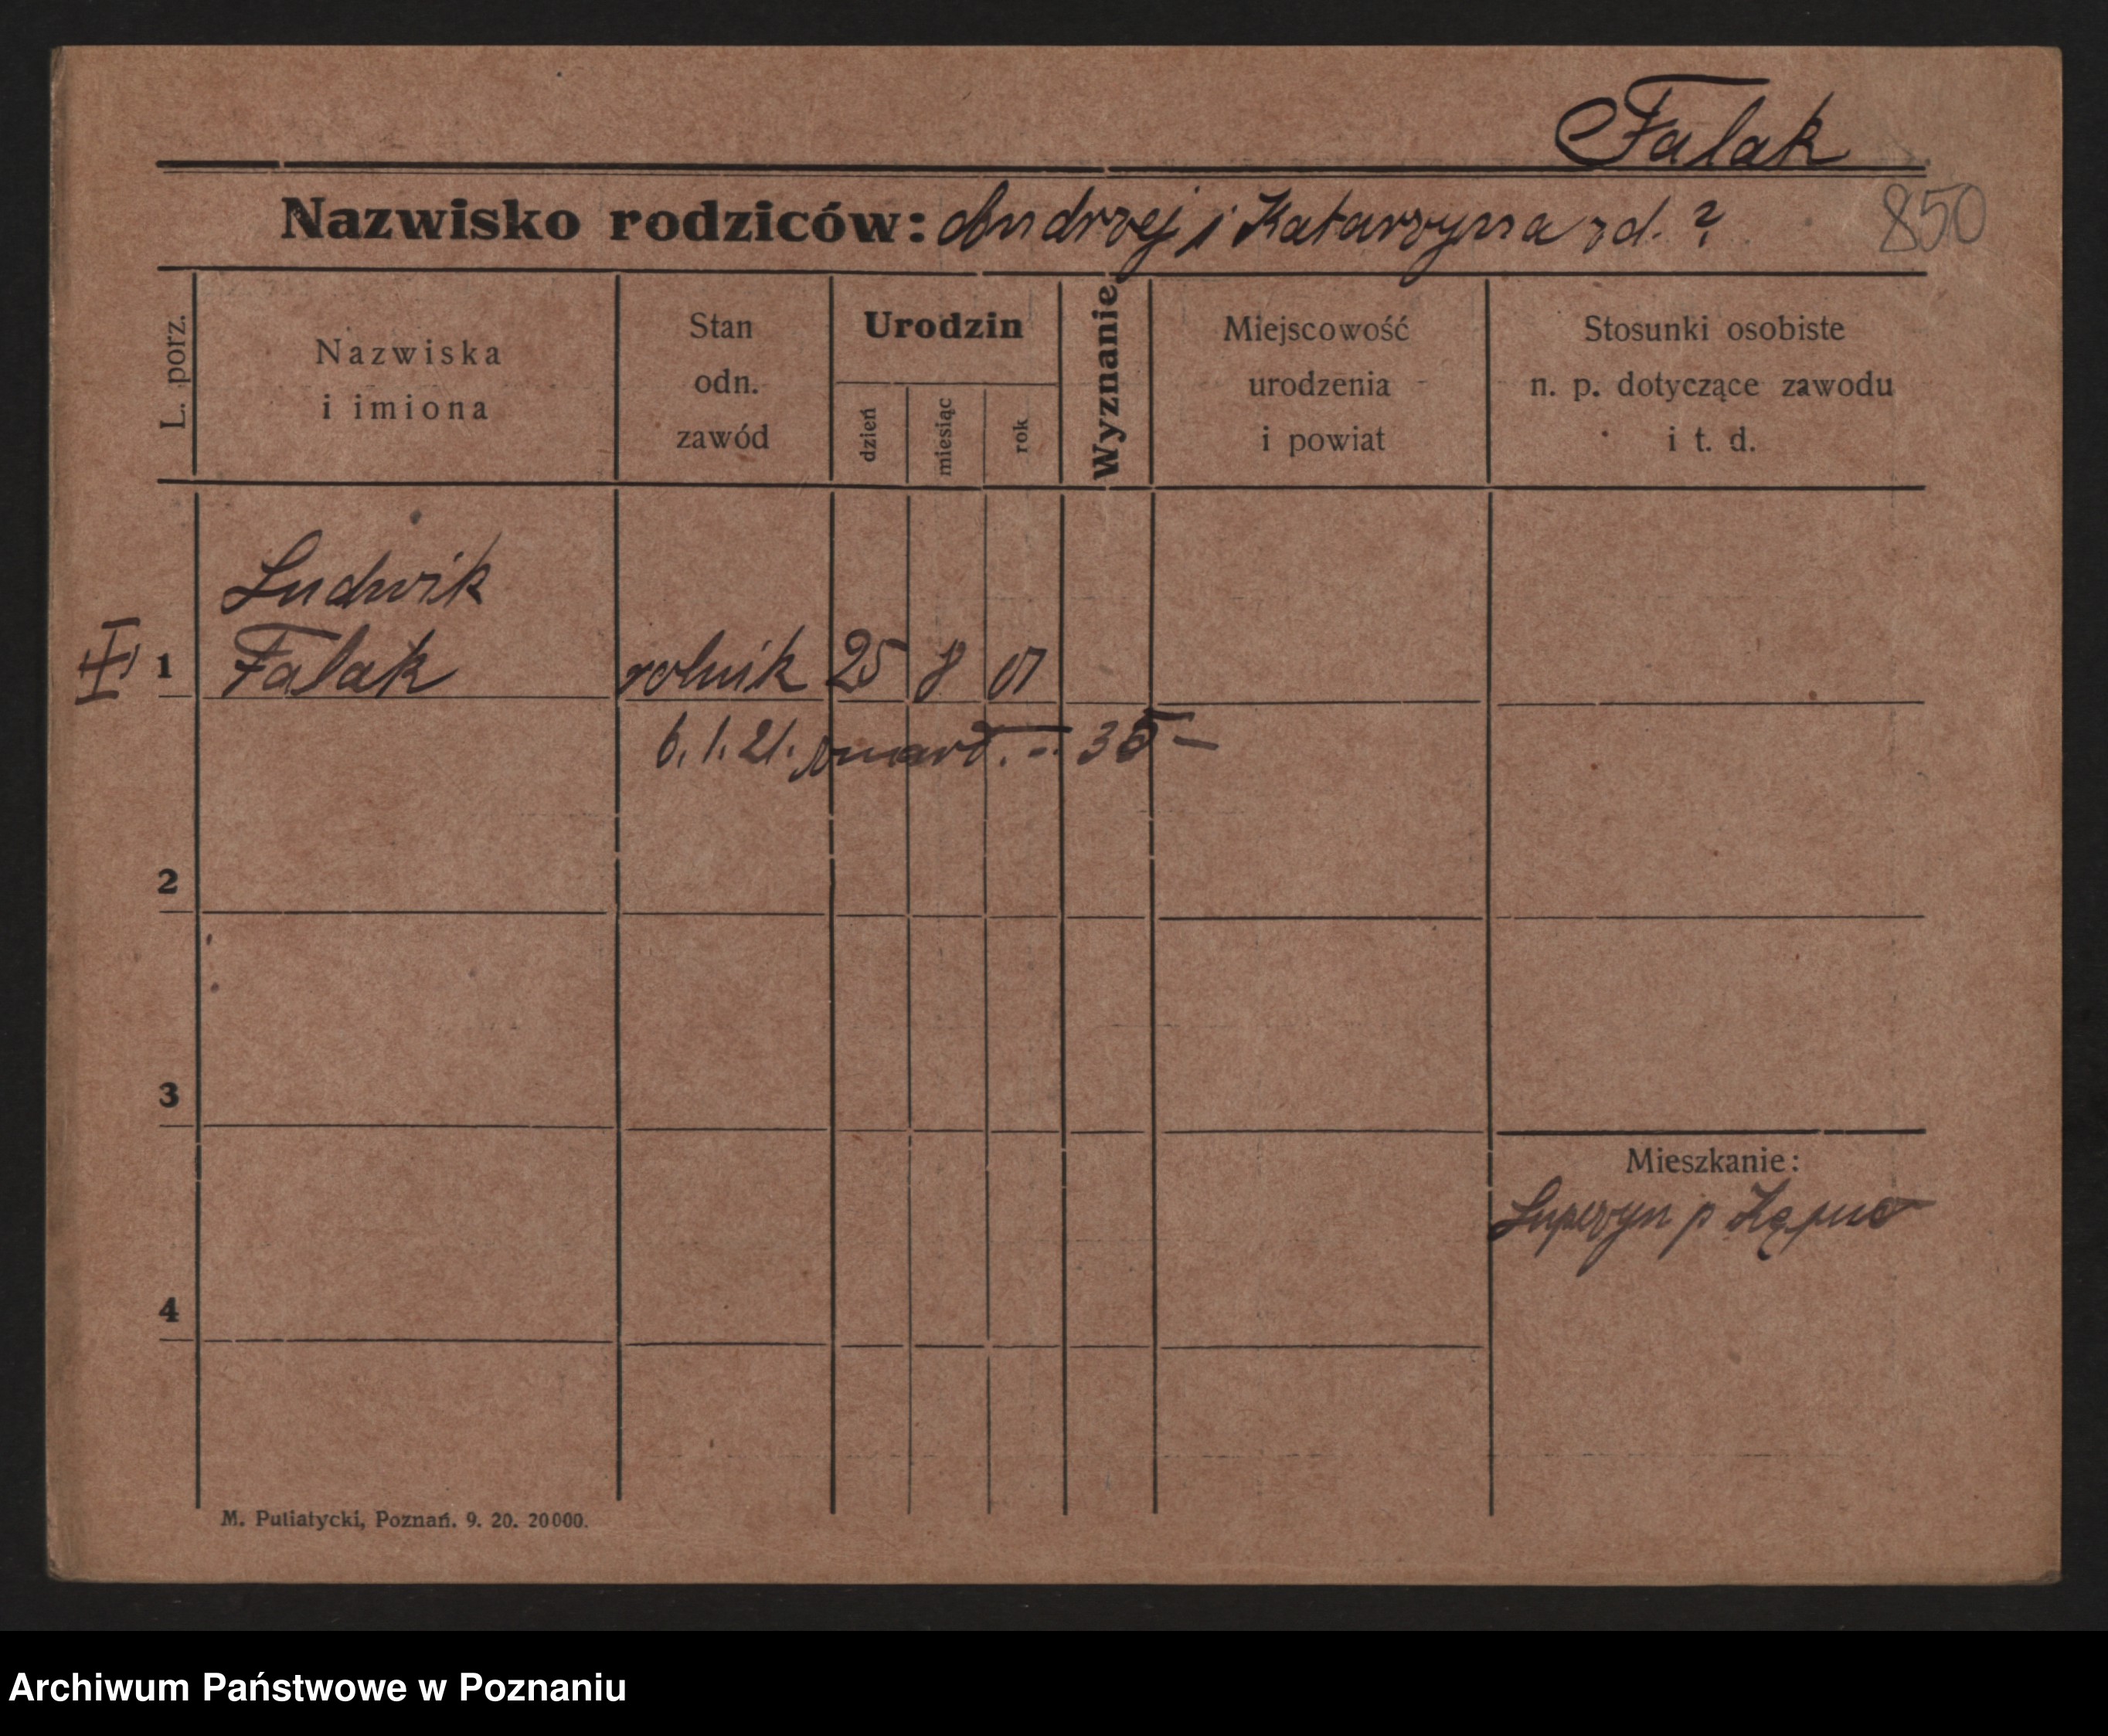 Falak
Nazwisko rodziców: Andrzej i Katarzyna zd. ?
850
L. porz.
Nazwiska
i imiona
Stan
odn.
zawód
Urodzin
dzień
miesiąc
rok
Wyznanie
Miejscowość
urodzenia
i powiat
Stosunki osobiste
n. p. dotyczące zawodu
i t. d.
Ludwik
1 Falak rolnik 25 8 01
6. 1. 21. 35 –
2
3
4
Mieszkanie:
p Kępno
M. Putiatycki, Poznań. 9. 20. 20000.
Archiwum Państwowe w Poznaniu